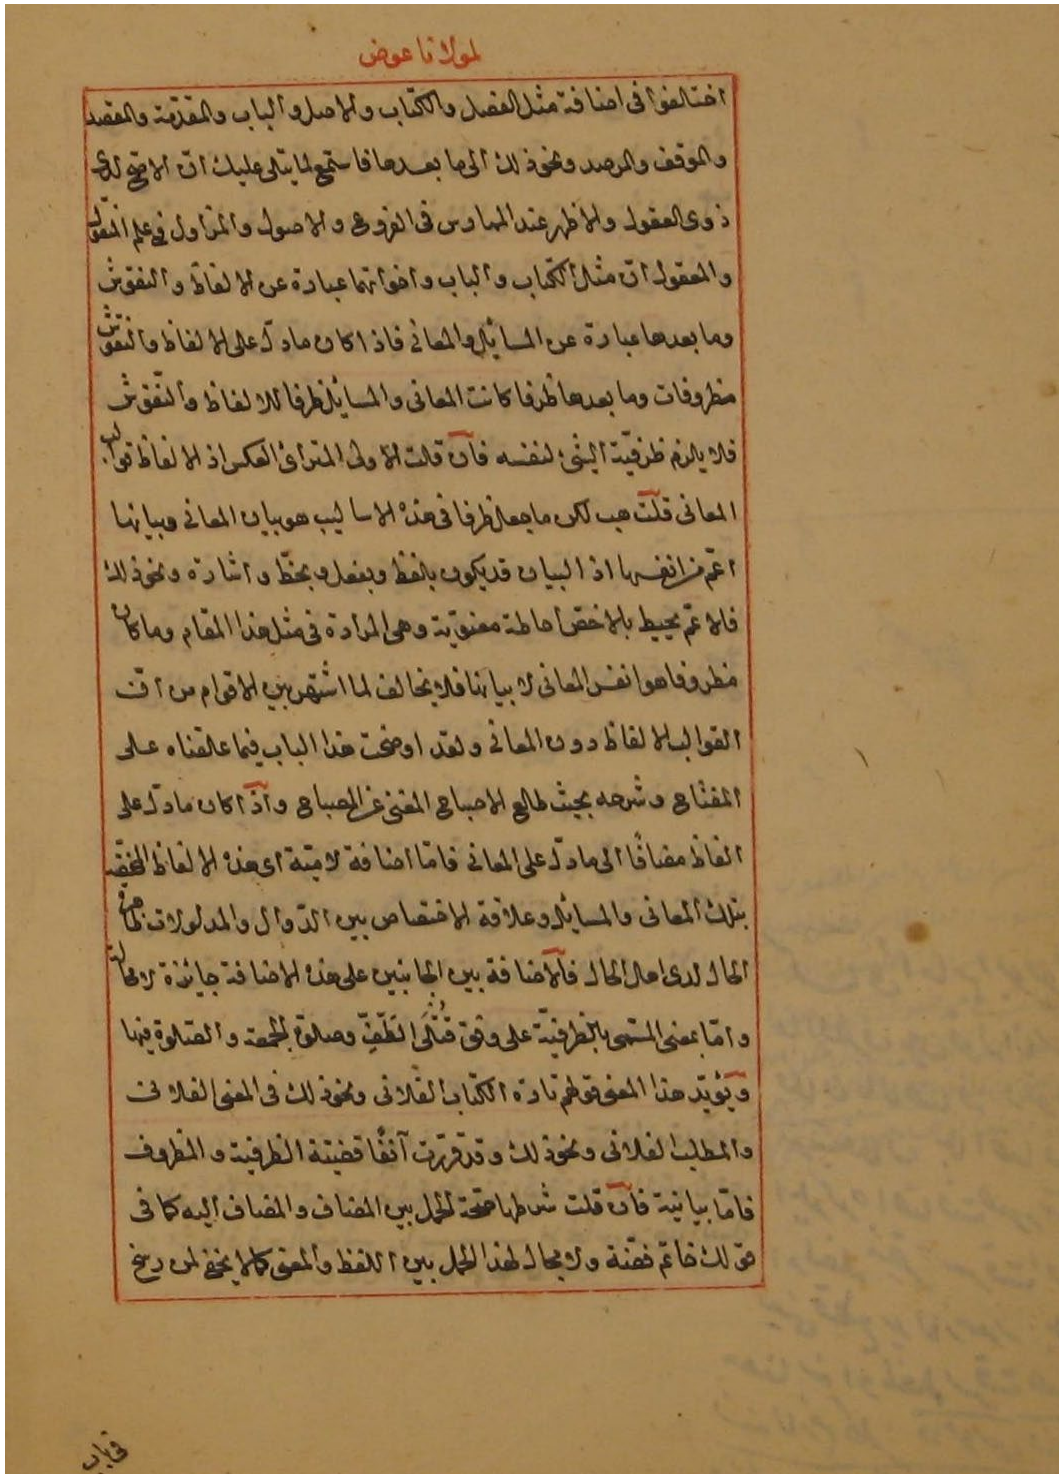 لمولانا عوض
اختلفوا في اضافة مثل الفصل والكتاب والاصل والباب والمقدمة والمقصد
والموقف والمرصد ونحو ذلك الى ما بعدها فاستمع لما يتلى عليك ان الاصح لدى
ذوى العقول والاظهر عند الممارس في الفروع والاصول والمزاول في علم المنقول
والمعقول ان مثل الكتاب والباب واخواتهما عبارة عن الالفاظ والنقوش
وما بعدها عبارة عن المسائل والمعاني فاذا كان ما دل على الالفاظ والنقوش
مظروفات وما بعدها ظرفا كانت المعاني والمسائل ظرفا للالفاظ والنقوش
فلا يلزم ظرفية الشئ لنفسه فان قلت الاولى المتراى العكس اذ الالفاظ قوالب
المعاني قلت هب لكن ما جعل ظرفا في هذه الاساليب هو بيان المعاني وبيانها
اعم من انفسها اذ البيان قد يكون بلفظ وبفعل وبخط واشارة ونحو ذلك
فالاعم يحيط بالاخص احاطة معنوية وهى المرادة في مثل هذا المقام وما كان
مظروفا هو انفس المعاني لا بيانها فلا يخالف لما اشتهر بين الاقوام من ان
القوالب الالفاظ دون المعاني ولقد اوضحت هذا الباب فيما علقناه على
المفتاح وشرحه بحيث طالع الاصباح المغنى عن المصباح واذا كان ما دل على
الفاظ مضافا الى ما دل على المعاني فاما اضافة لامية اى هذه الالفاظ المختصة
بتلك المعاني والمسائل وعلاقة الاختصاص بين الدوال والمدلولات
الحال لدى اهل الحال فالاضافة بين الجانبين على هذه الاضافة جائزة لا محالة
واما بمعنى المسمى بالظرفية على وفق قتلى الطف وصلوة الجمعة والصلوة فيها
ويؤيد هذا المعنى قولهم تارة الكتاب الفلاني ونحو ذلك في المعنى الفلاني
والمطلب الفلاني ونحو ذلك وقد قررت آنفا قضيتة الظرفية والمظروف
فاما بيانية فان قلت شرطها صحة الحمل بين المضاف والمضاف اليه كما في
قولك خاتم فضة ولا مجال لهذا الحمل بين اللفظ والمعنى كما لا يخفى لمن رسخ
في باب